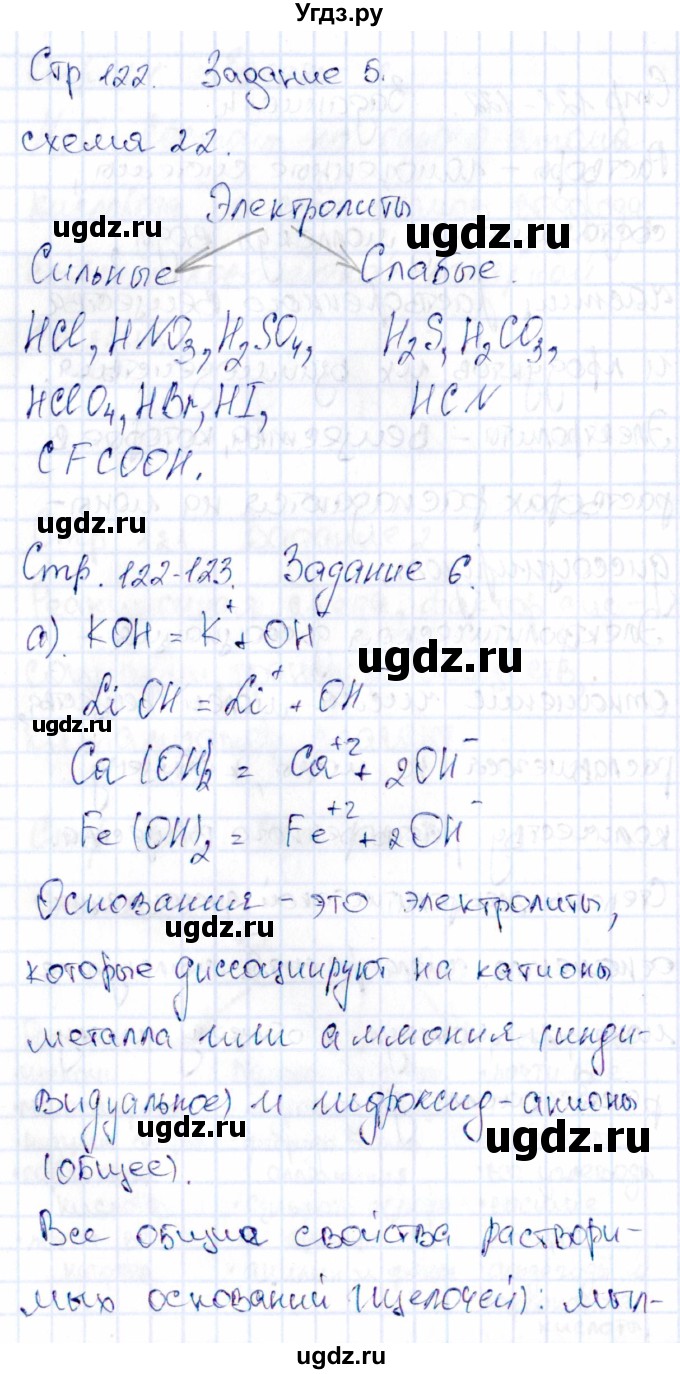 Угдз.ру
Стр 122. Задание 5.
схема 22.
Электролиты
ugdz.ru
ugdz.ru
Сильные
Слабые.
HCl, HNO3, H2SO4,
H2S, H2CO3,
HClO4, HBr, HI,
HCN
CFCOOH.
ugdz.ru
Стр. 122-123. Задание 6.
а). KOH = K+ + OH-
ugdz.ru
LiOH = Li+ + OH-
ugdz.ru
Ca(OH)2 = Ca+2 + 2OH-
Fe(OH)2 = Fe+2 + 2OH-
Основания - это электролиты,
ugdz.ru
которые диссоциируют на катионы
металла или аммония (инди-
видуальное) и гидроксид-анионы
ugdz.ru
ugdz.ru
(общее).
Все общие свойства раствори-
мых оснований (щелочей): мыл-
ugdz.ru